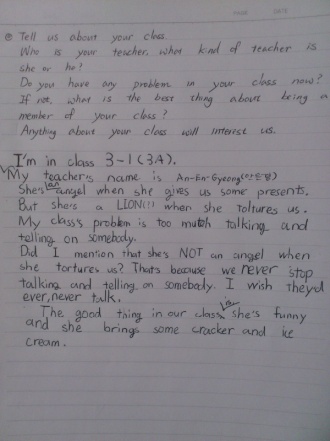 ◎ Tell us about your class.
Who is your teacher, what kind of teacher is
she or he?
Do you have any problem in your class now?
If not, what is the best thing about being a
member of your class?
Anything about your class will interest us.
I'm in class 3-1 (3A).
My teacher's name is An-En-Gyeong
She's an angel when she gives us some presents.
But she's a LION(!) when she toltures us.
My class's problem is too mutch talking and
telling on somebody.
Did I mention that she's NOT an angel when
she tortures us? That's because we never stop
talking and telling on somebody. I wish they'd
ever, never talk.
The good thing in our class, she's funny
and she brings some cracker and ice
cream.